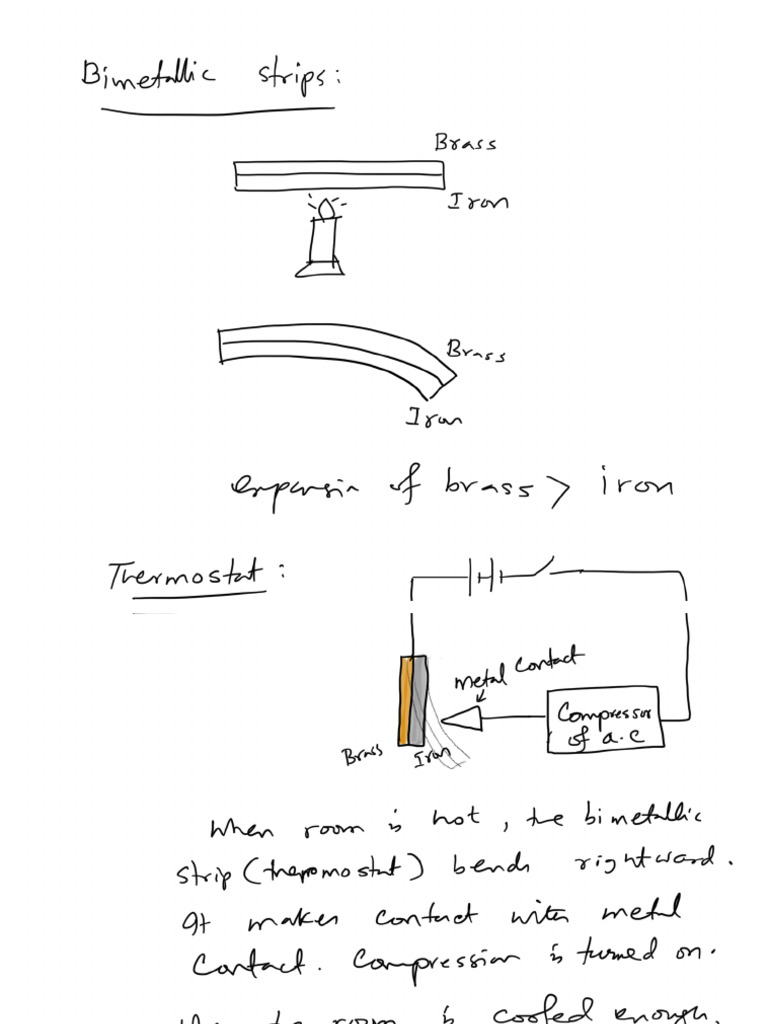 Bimetallic strips:
Brass
Iron
Brass
Iron
expansion of brass > iron
Thermostat:
metal contact
Compressor
of a.c
Brass
Iron
When room is hot, the bimetallic
strip (thermostat) bends rightward.
It makes contact with metal
contact. Compression is turned on.
room is cooled enough,